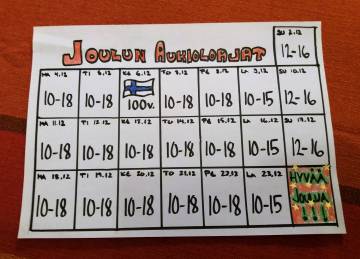 JOULUN AUKIOLOAJAT
SU 3.12
12-16
MA 4.12 TI 5.12 KE 6.12 TO 7.12 PE 8.12 LA 9.12 SU 10.12
10-18 10-18 100v. 10-18 10-18 10-15 12-16
MA 11.12 TI 12.12 KE 13.12 TO 14.12 PE 15.12 LA 16.12 SU 17.12
10-18 10-18 10-18 10-18 10-18 10-15 12-16
MA 18.12 TI 19.12 KE 20.12 TO 21.12 PE 22.12 LA 23.12
10-18 10-18 10-18 10-18 10-18 10-15
HYVÄÄ
JOULUA
!!!